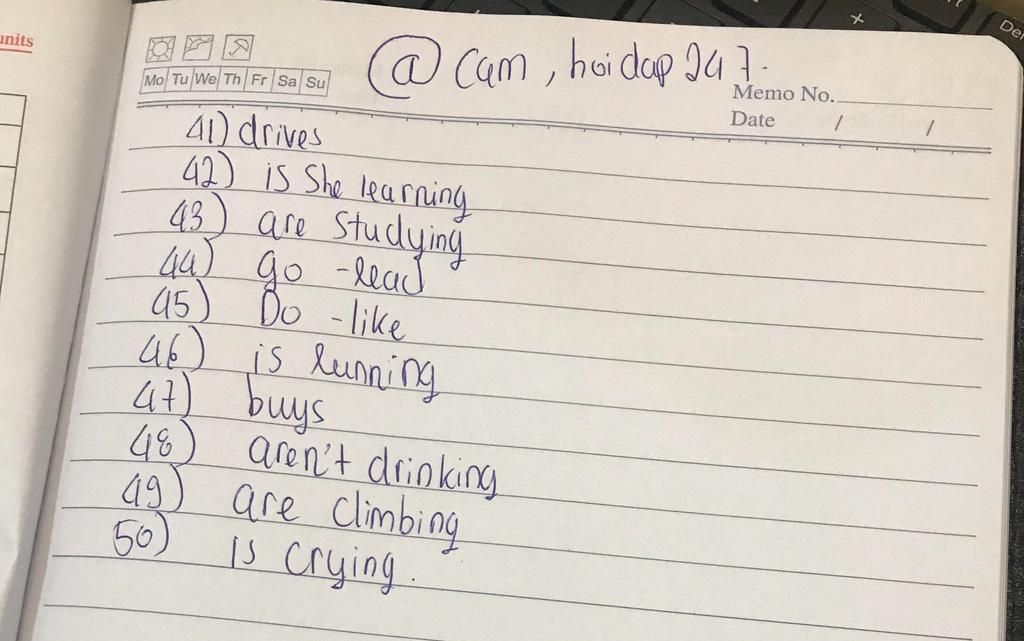 units
@ Cam, hoidap247.
Mo Tu We Th Fr Sa Su
Memo No.
Date / /
41) drives
42) is She learning
43) are Studying
44) go - read
45) Do - like
46) is running
47) buys
48) aren't drinking
49) are climbing
50) is crying.
+
De